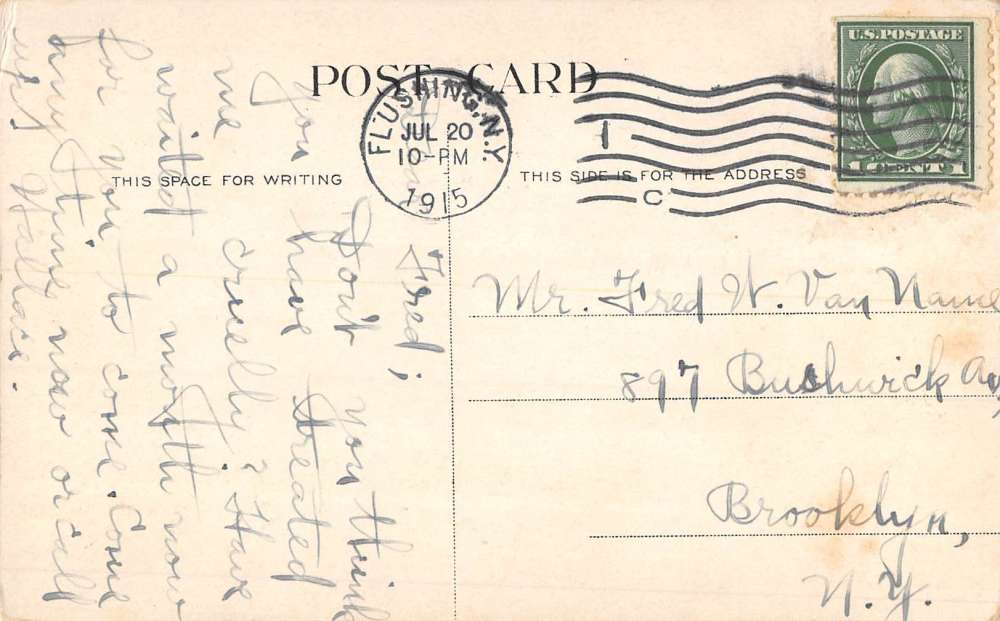 POST CARD
THIS SPACE FOR WRITING
THIS SIDE IS FOR THE ADDRESS
FLUSHING, N.Y.
JUL 20
10-PM
1915
1
C
U.S. POSTAGE
1 CENT 1
Fred;
Don't you think
you have treated
me cruelly? Have
waited a month now
for you to come. Come
any time now or call
up.
Wallace.
Mr. Fred W. Van Name
897 Bushwick Av,
Brooklyn,
N.Y.